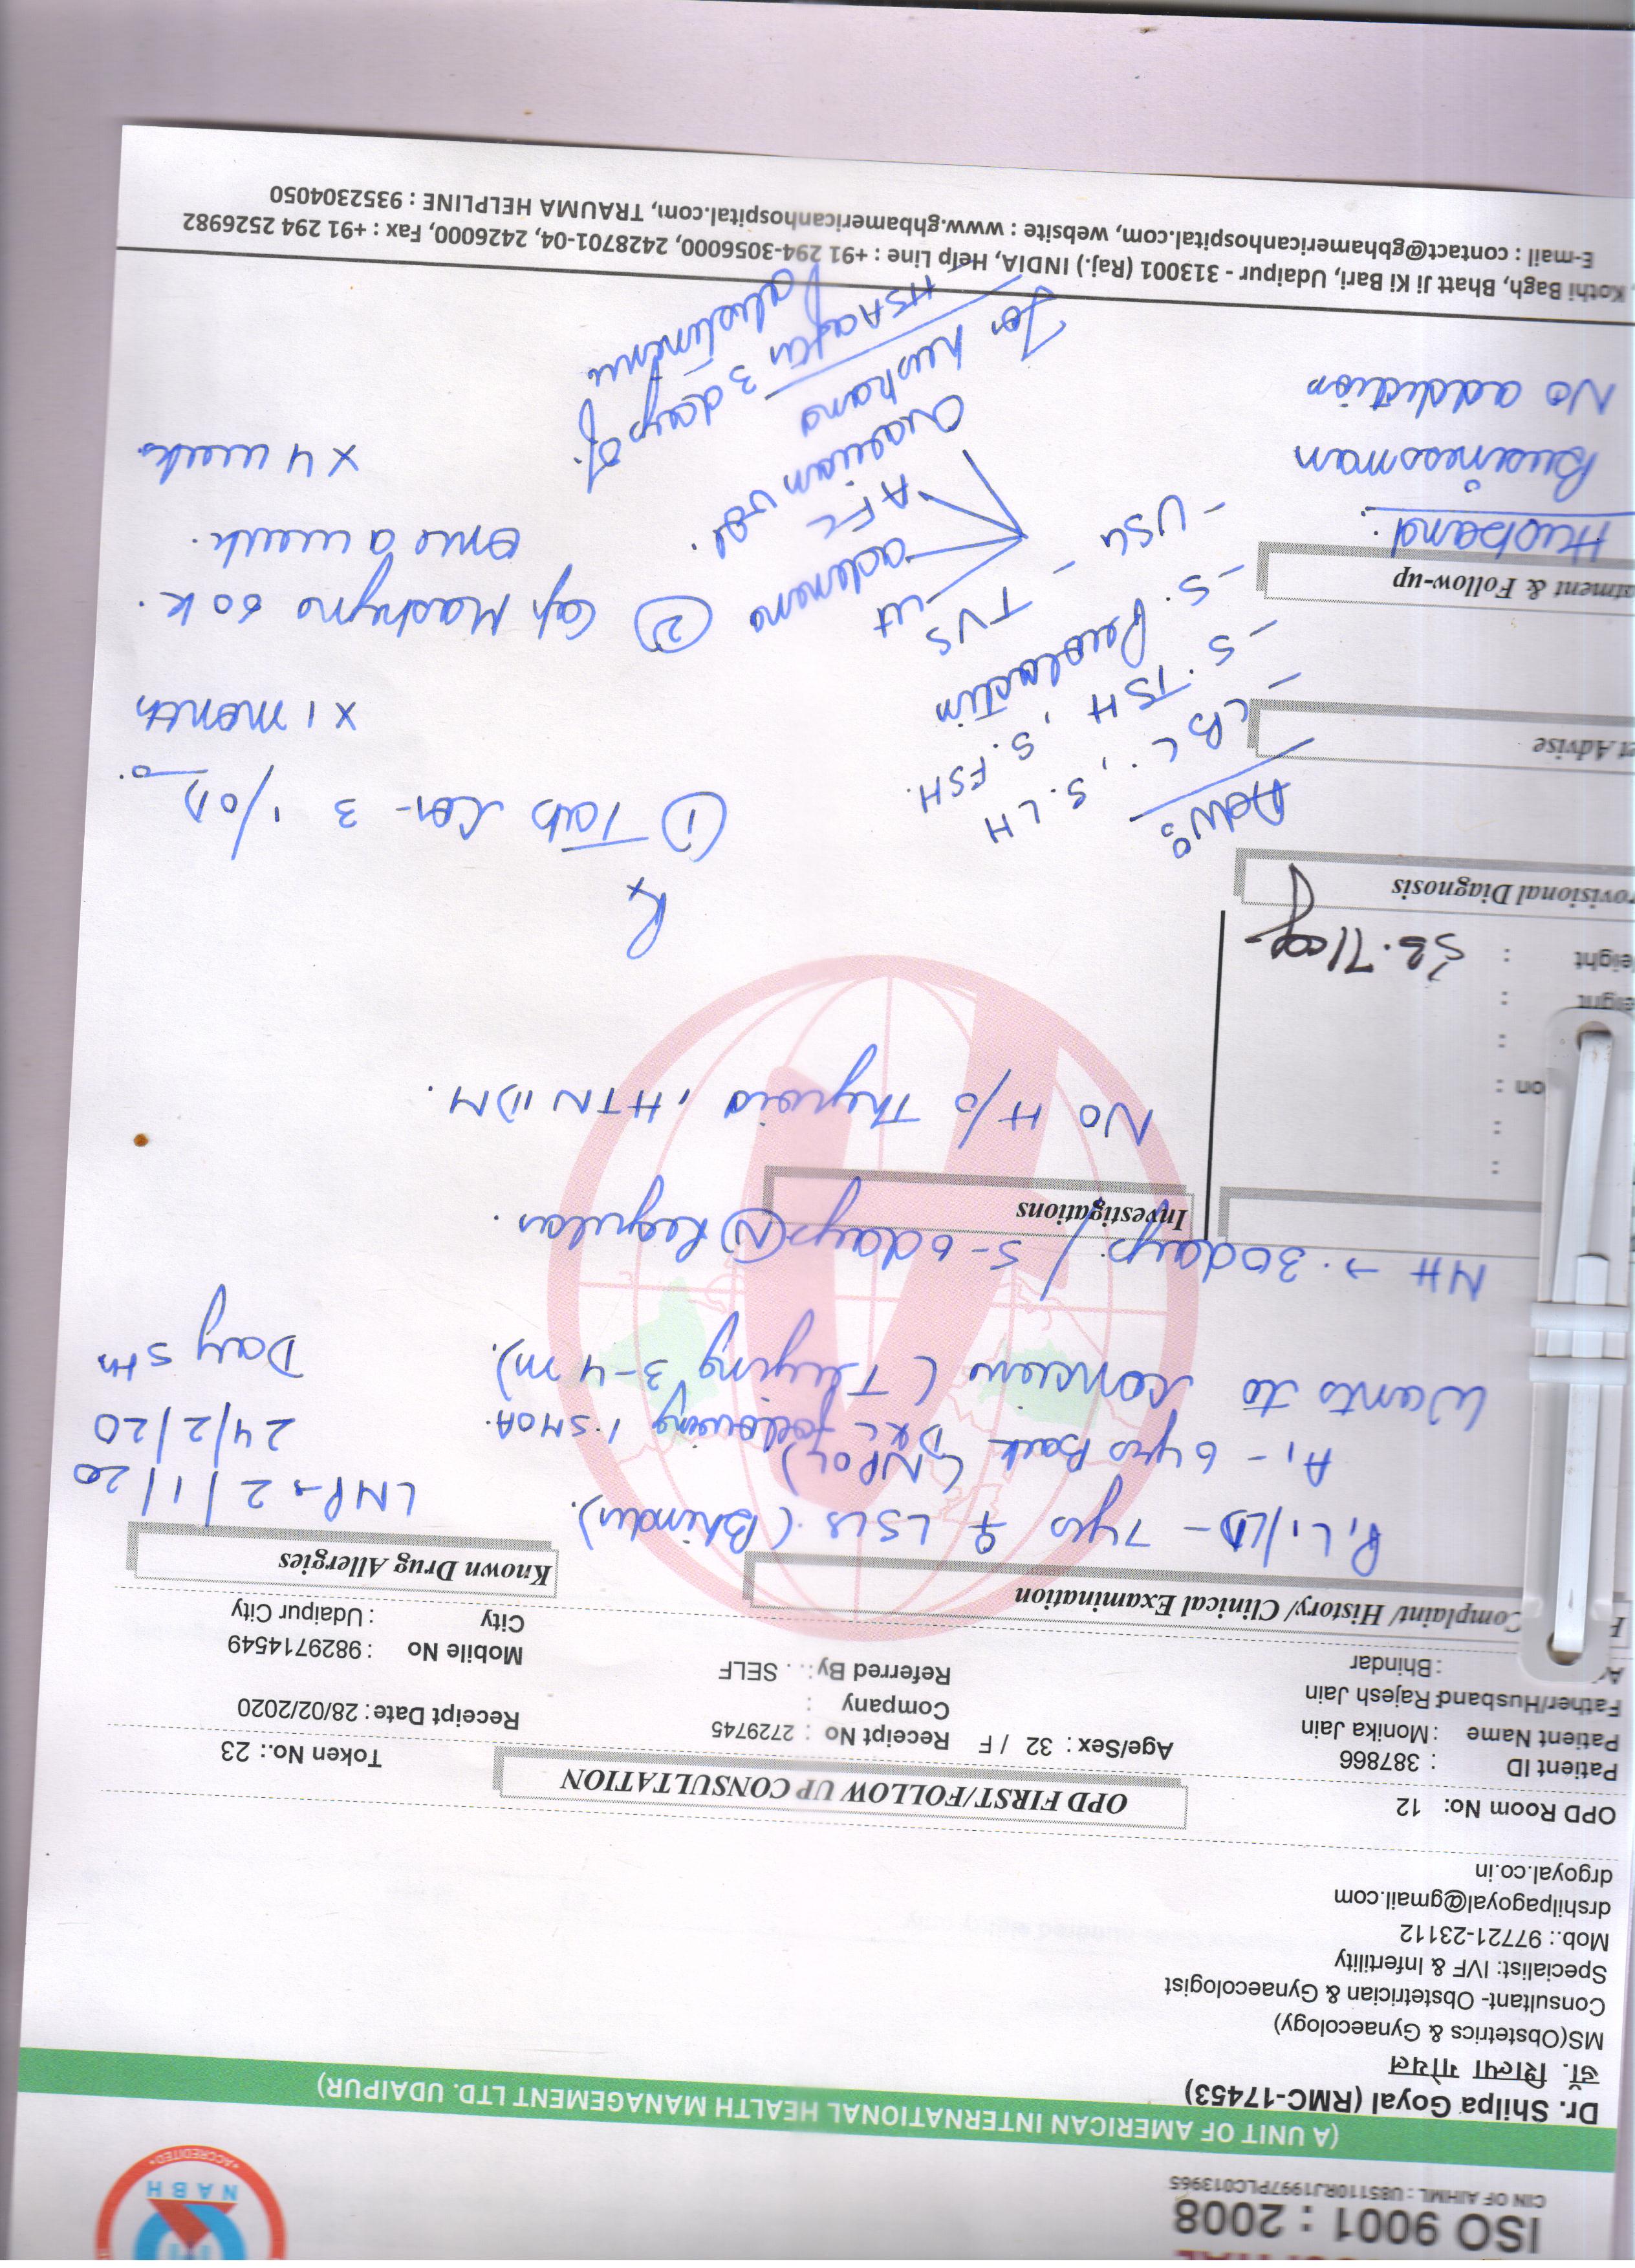 ISO 9001 : 2008
CIN OF AIHML : U85110RJ1997PLC013965
NABH
ACCREDITED
(A UNIT OF AMERICAN INTERNATIONAL HEALTH MANAGEMENT LTD. UDAIPUR)
Dr. Shilpa Goyal (RMC-17453)
डॉ. शिल्पा गोयल
MS(Obstetrics & Gynaecology)
Consultant- Obstetrician & Gynaecologist
Specialist: IVF & Infertility
Mob.: 97721-23112
drshilpagoyal@gmail.com
drgoyal.co.in
OPD Room No: 12
OPD FIRST/FOLLOW UP CONSULTATION
Token No.: 23
Patient ID : 387866
Patient Name : Monika Jain
Age/Sex : 32 / F
Receipt No : 2729745
Receipt Date : 28/02/2020
Father/Husband : Rajesh Jain
Company :
: Bhindar
Referred By : SELF
Mobile No : 9829714549
City : Udaipur City
Complaint/ History/ Clinical Examination
Known Drug Allergies
P1L1/LD - 7yrs ♀ LSCS (Bhinder).
LMP → 2/1/20
A1 - 6yrs Back (NPOL)
D&C following 1.5MOA.
24/2/20
Wants to conceive (Trying 3-4 m).
Day 5th
MH → 30days / 5-6days (N) Regular.
Investigations
No H/o Thyroid, HTN, DM.
eight :
52.71kg
Provisional Diagnosis
Rx
Adv:
① Tab 3 1/OD
x 1 month
- CBC, S. LH
- S. TSH, S. FSH.
- S. Prolactin
et Advise
- USG - TVS
ut
AFC
Ovarian vol.
② Cap 60K.
once a week.
x 4 weeks.
atment & Follow-up
Husband:
Businessman
No addiction
For husband
HSA after 3 days of
abstinence
Kothi Bagh, Bhatt Ji Ki Bari, Udaipur - 313001 (Raj.) INDIA, Help Line : +91 294-3056000, 2428701-04, 2426000, Fax : +91 294 2526982
E-mail : contact@gbhamericanhospital.com, website : www.gbhamericanhospital.com, TRAUMA HELPLINE : 9352304050